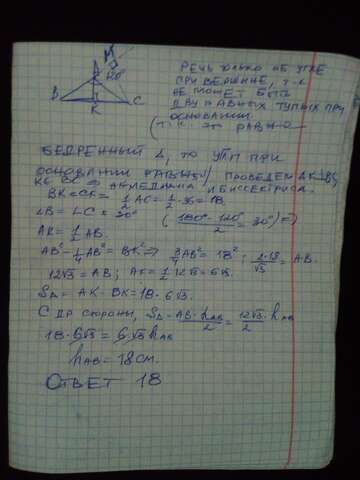 М
А
120°
В
С
К
РЕЧЬ ТОЛЬКО ОБ УГЛЕ
ПРИ ВЕРШИНЕ, Т.К.
НЕ МОЖЕТ БЫТЬ
ДВУХ РАВНЫХ ТУПЫХ ПРИ
ОСНОВАНИИ.
(Т.К. ЭТО РАВНО-
БЕДРЕННЫЙ Δ, ТО УГЛЫ ПРИ
ОСНОВАНИИ РАВНЫ) ПРОВЕДЕМ АК
МЕДИАНА И БИССЕКТРИСА.
ВК=СК= 1/2 АС= 1/2·36=18.
∠В = ∠С = 30° (180°-120°/2 = 30°) ⇒
АК= 1/2 АВ.
АВ²- 1/4 АВ² = ВК² ⇒ 3/4 АВ² = 18²; 2·18/√3 = АВ.
12√3 = АВ; АК= 1/2 12√3 = 6√3.
SΔ = АК·ВК=18·6√3.
С ДР СТОРОНЫ, SΔ= АВ·hАВ/2 = 12√3/2 · hАВ
18·6√3 = 6√3 hАВ
hАВ = 18 СМ.
ОТВЕТ 18